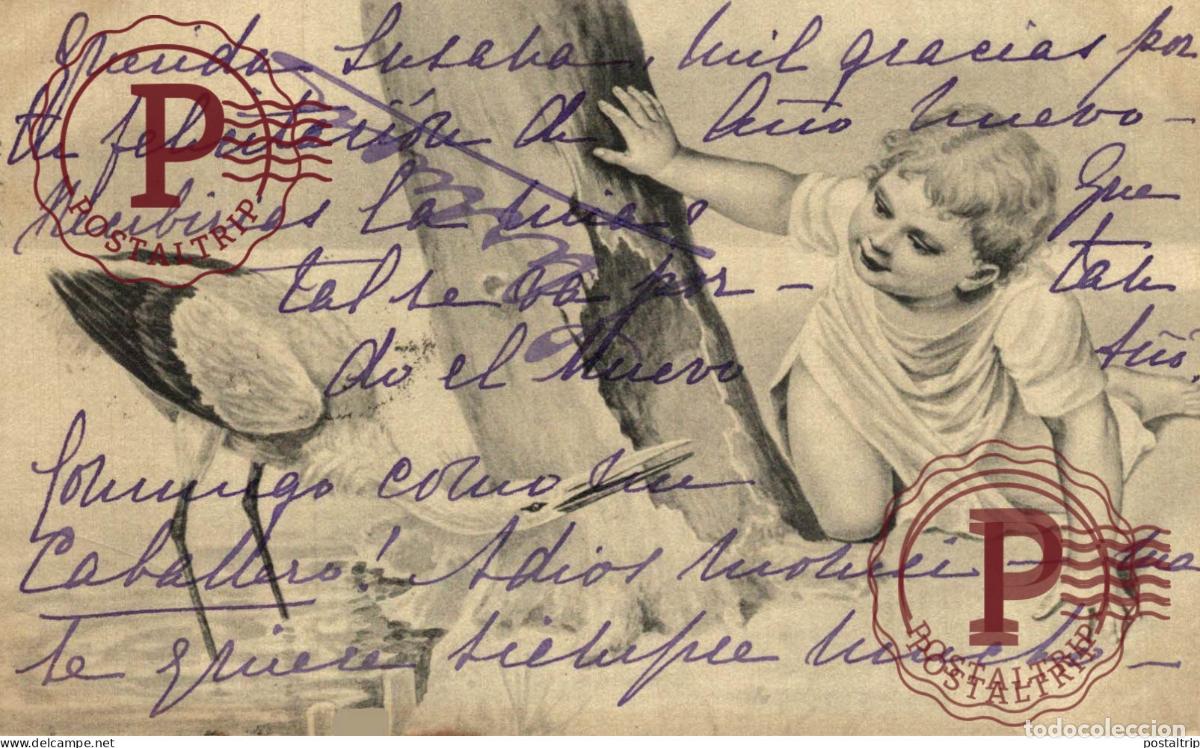 Querida Susana, mil gracias por
tu felicitación de Año Nuevo -
Recibirias la mia? Que
tal se va por - tan
do el Nuevo Año,
Conmigo como un
Caballero! Adios - na
te quiere siempre mucho -
POSTALTRIP
P
POSTALTRIP
P
POSTALTRIP
todocoleccion
www.delcampe.net
postaltrip